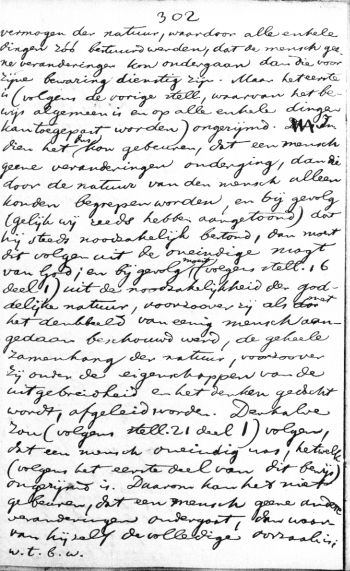 302
vermogen der natuur, waardoor alle enkele
dingen zóó bestuurd werden, dat de mensch gee-
ne veranderingen kon ondergaan dan die voor
zijne bewaring dienstig zijn. Maar het eerste
is (volgens de vorige stell., waarvan het be-
wijs algemeen is en op alle enkele dingen
kan toegepast worden) ongerijmd. In-
dien het dus kon gebeuren, dat een mensch
geene veranderingen onderging, dan die
door de natuur van den mensch alleen
konden begrepen worden, en bij gevolg
(gelijk wij reeds hebben aangetoond) dat
hij steeds noodzakelijk bestond, dan moet
dit volgen uit de oneindige magt
van God; en bij gevolg moest (volgens stell. 16
deel 1) uit de noodzakelijkheid der god-
delijke natuur, voorzoover zij als met
het denkbeeld van eenig mensch aan-
gedaan beschouwd werd, de geheele
zamenhang der natuur, voorzoover
zij onder de eigenschappen van de
uitgebreidheid en het denken gedacht
wordt, afgeleid worden. Derhalve
zou (volgens stell. 21 deel 1) volgen,
dat een mensch oneindig was, hetwelk
(volgens het eerste deel van dit bewijs)
ongerijmd is. Daarom kan het niet
gebeuren, dat een mensch geene andere
veranderingen ondergaat, dan waar-
van hij zelf de volledige oorzaak is;
w. t. b. w.